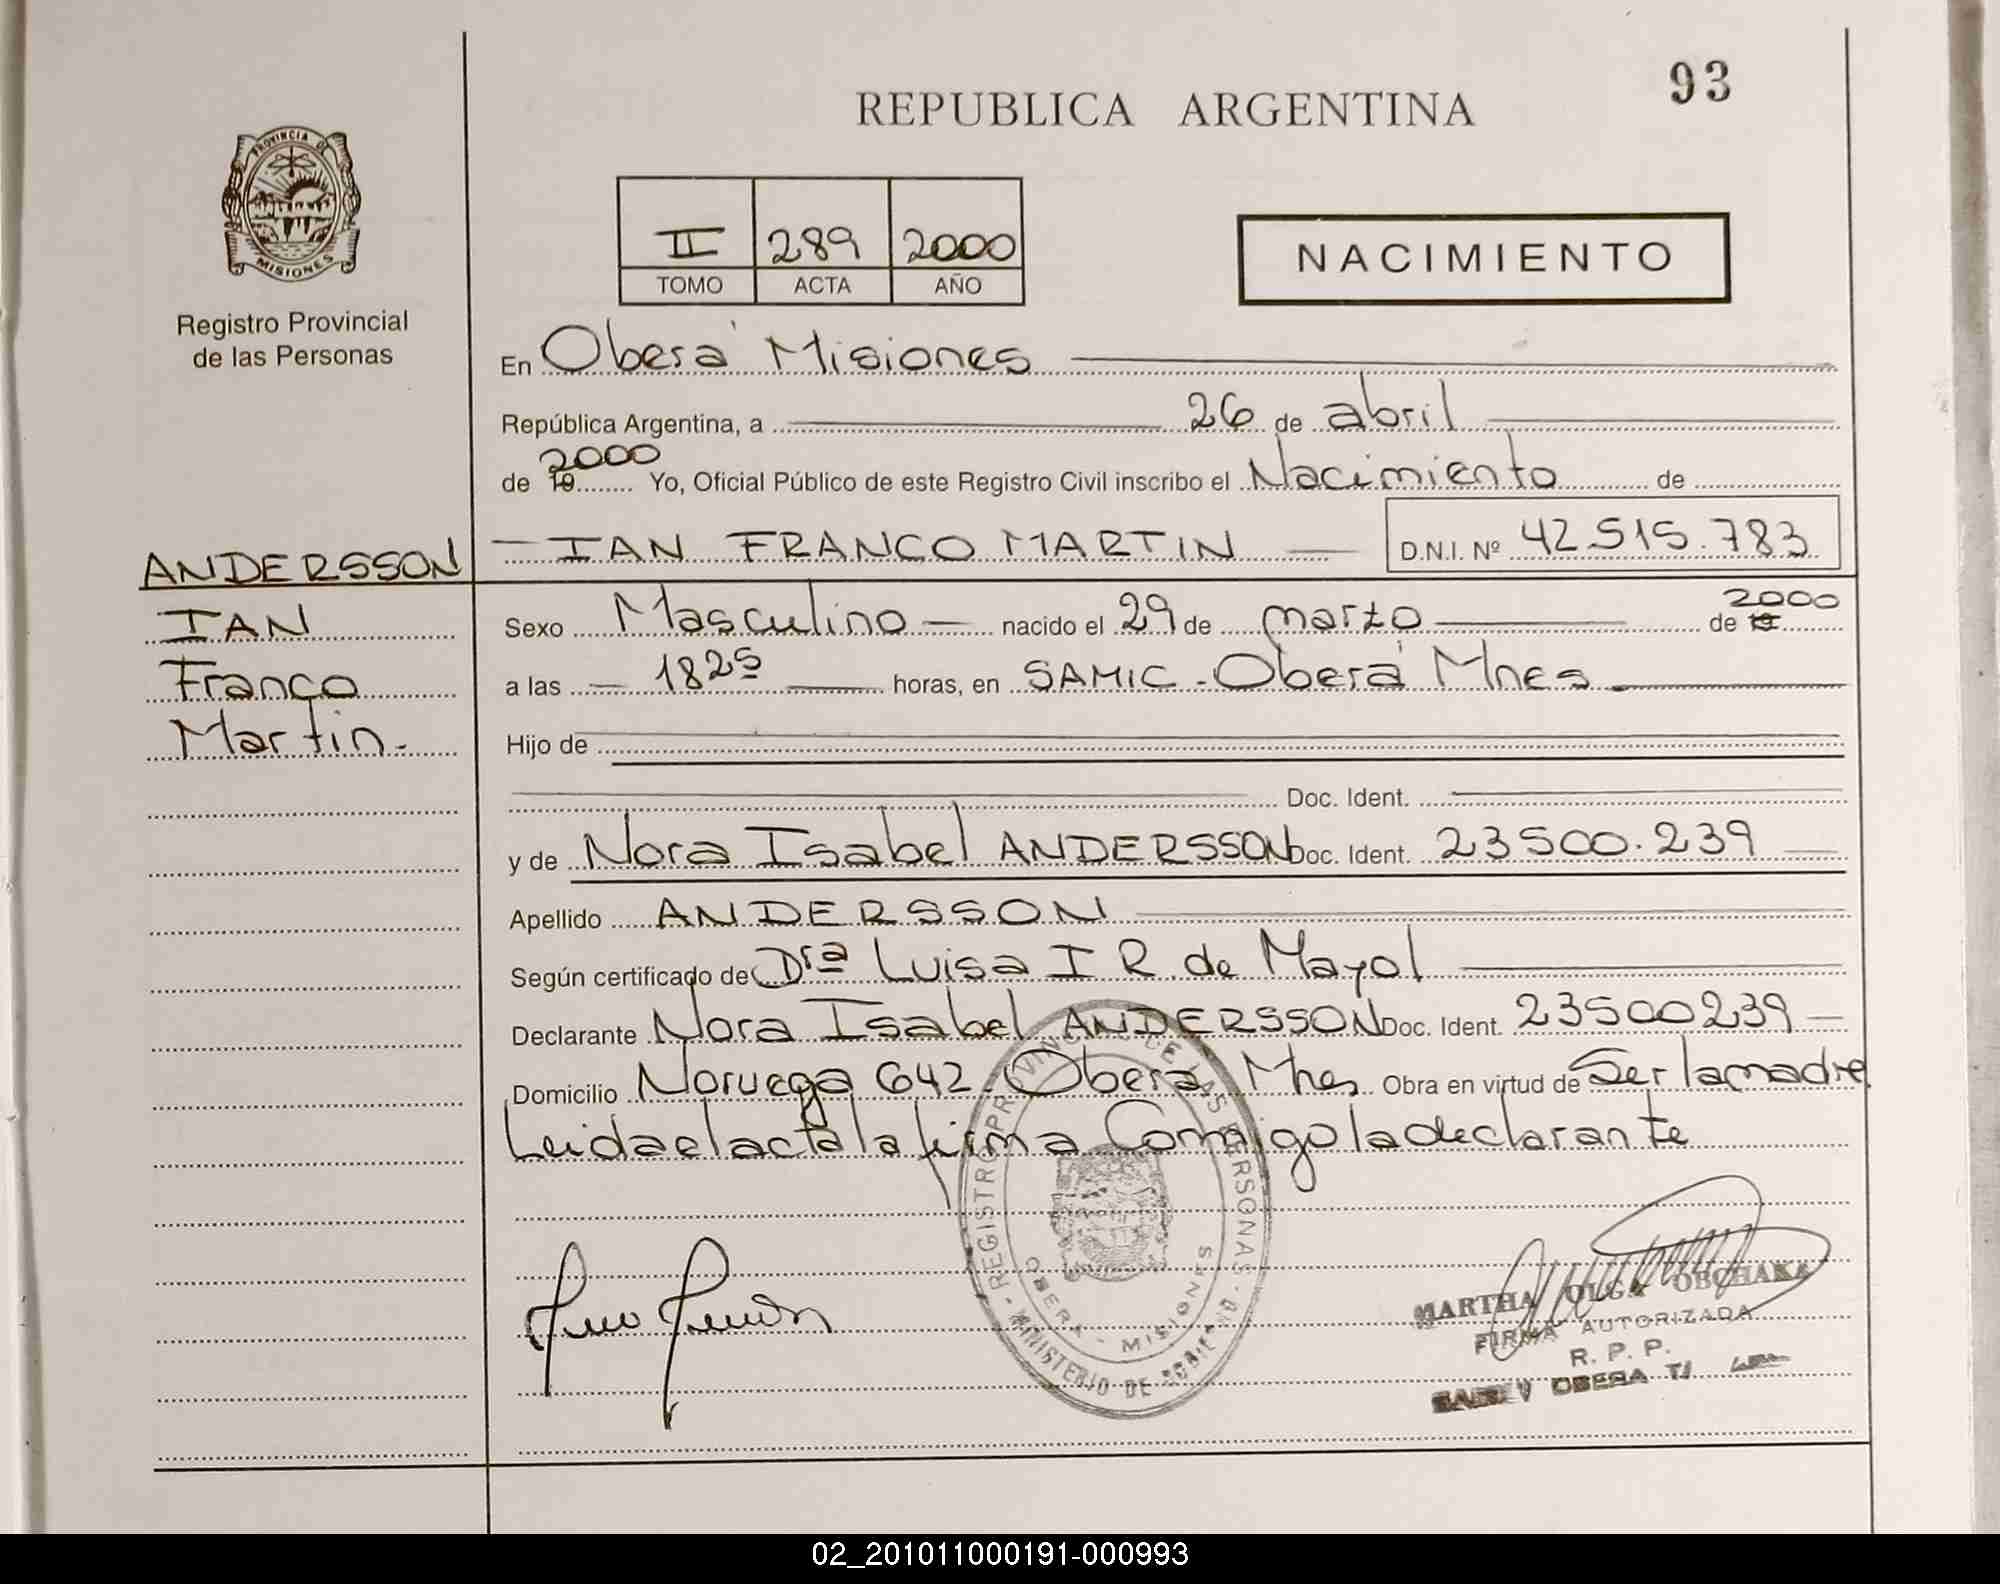 93
REPUBLICA ARGENTINA
PROVINCIA DE
MISIONES
Registro Provincial
de las Personas
II 289 2000
TOMO ACTA AÑO
NACIMIENTO
En Oberá Misiones
República Argentina, a 26 de abril
de 19 2000 Yo, Oficial Público de este Registro Civil inscribo el Nacimiento de
ANDERSSON
IAN
Franco
Martin.
IAN FRANCO MARTIN D.N.I. Nº 42.515.783
Sexo Masculino nacido el 29 de marzo de 19 2000
a las 1825 horas, en SAMIC - Oberá Mnes
Hijo de
Doc. Ident.
y de Nora Isabel ANDERSSON Doc. Ident. 23500.239
Apellido ANDERSSON
Según certificado de Drª Luisa I R de Mayol
Declarante Nora Isabel ANDERSSON Doc. Ident. 23500239
Domicilio Noruega 642. Oberá Mnes Obra en virtud de Ser la madre
Leida el acta la firma Conmigo la declarante
REGISTRO PROVINCIAL DE LAS PERSONAS
MINISTERIO DE
OBERA - MISIONES
MARTHA OLGA OBCHAKA
FIRMA AUTORIZADA
R. P. P.
OBERA
02_201011000191-000993